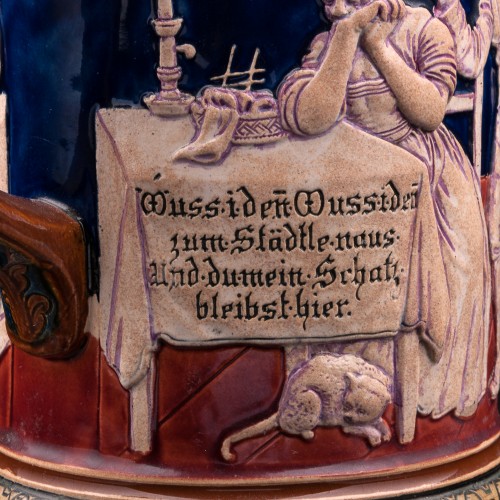 Muss·i deñ·Muss·i deñ
zum·Städtle·naus·
Und·du mein·Schatz·
bleibst·hier.